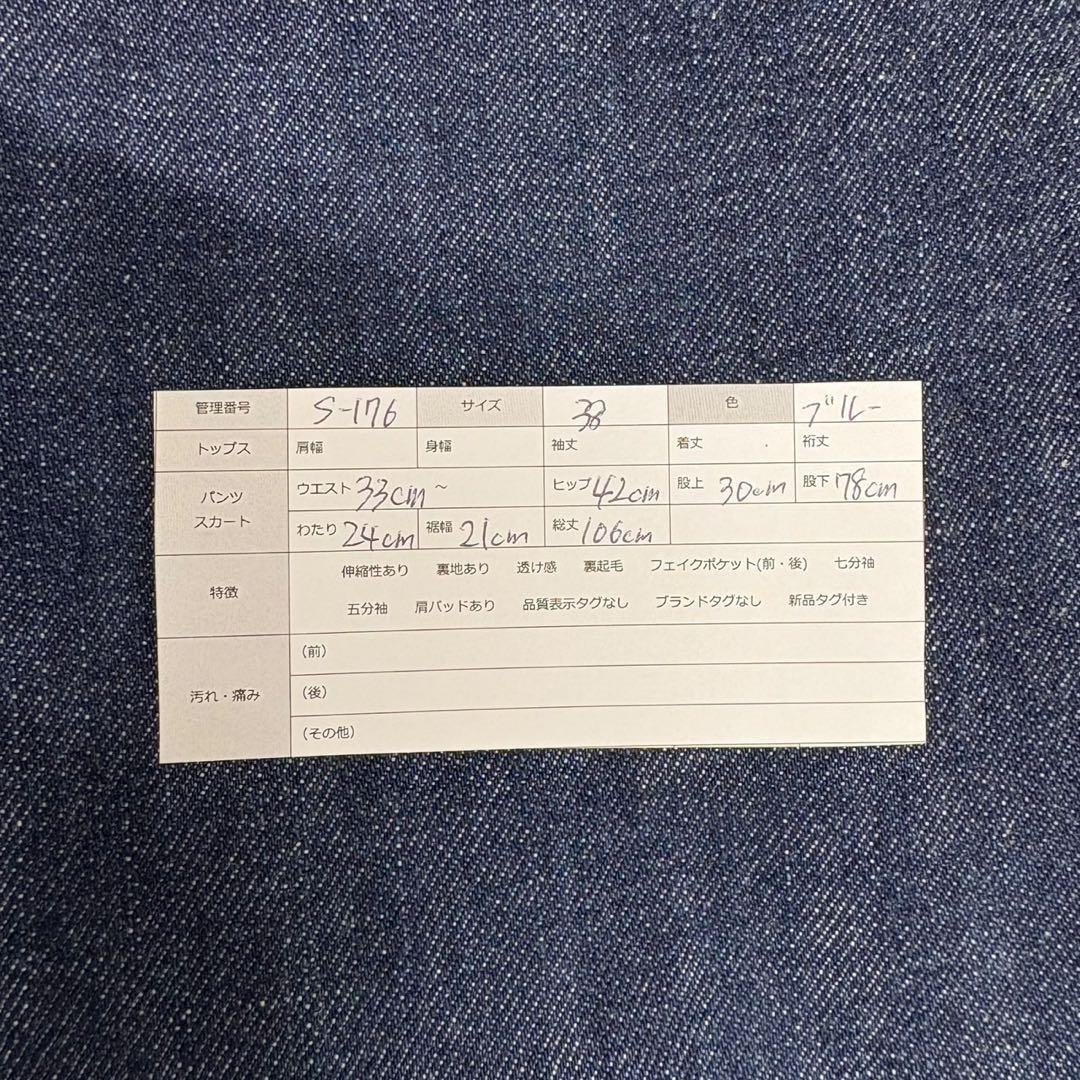 管理番号 S-176 サイズ 38 色 ブルー
トップス 肩幅 身幅 袖丈 着丈 裄丈
パンツ スカート ウエスト 33cm ~ ヒップ 42cm 股上 30cm 股下 78cm
わたり 24cm 裾幅 21cm 総丈 106cm
特徴 伸縮性あり 裏地あり 透け感 裏起毛 フェイクポケット(前・後) 七分袖
五分袖 肩パッドあり 品質表示タグなし ブランドタグなし 新品タグ付き
汚れ・痛み (前)
(後)
(その他)